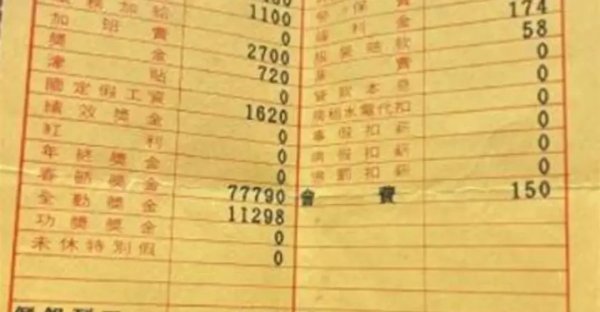 加給 1100 勞保費 174
加班費 0 福利金 58
獎金 2700 服裝賠款 0
津貼 720 費 0
國定假工資 0 貸款本息 0
績效獎金 1620 房租水電代扣 0
紅利 0 事假扣薪 0
年終獎金 0 病假扣薪 0
春節獎金 0 扣薪 0
全勤獎金 77790 會費 150
功獎獎金 11298
未休特別假 0
0